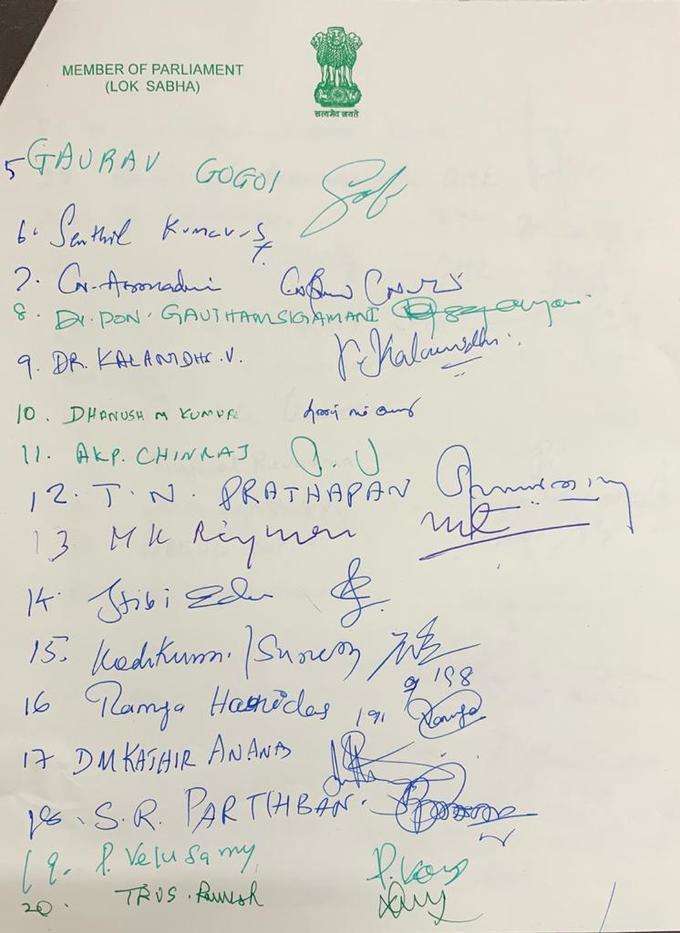 MEMBER OF PARLIAMENT
(LOK SABHA)
सत्यमेव जयते
5 GAURAV GOGOI
6. Senthil Kumar. S
7. CN. Annadurai
8. Dr. PON. GAUTHAMSIGAMANI
9. DR. KALANIDHI. V. V. Kalanidhi
10. DHANUSH M KUMAR
11. AKP. CHINRAJ
12. T. N. PRATHAPAN
13 MK
14. Hibi Eden
15. Kodikunnil Suresh
198
16 Ramya Haridas 191 Ramya
17 DM KATHIR ANAND
18. S.R. PARTHIBAN.
19. P. Velusamy
20. TRVS. Ramesh